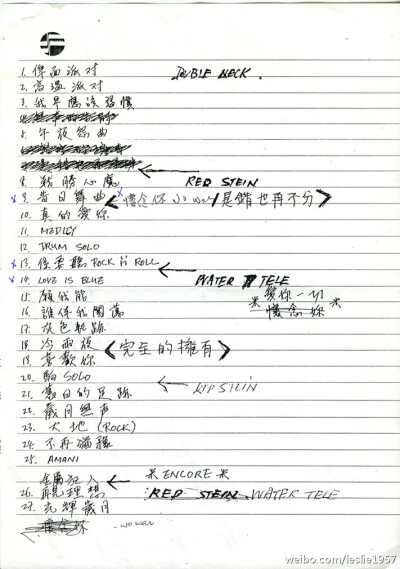 1. 俾面派对
DOUBLE NECK.
2. 高温派对
3. 我早應該習慣
5. 午夜怨曲
8. 戰勝心魔
RED STEIN
9. 昔日舞曲 <懷念您 JO WAN / 是錯也再不分>
10. 真的愛你
11. MEDLEY
12. DRUM SOLO
13. 係要聽 ROCK N ROLL
14. LOVE IS BLUE
WATER TELE
15. 願我能
愛你一切
懷念您
16. 誰伴我闖蕩
17. 灰色軌跡
18. 冷雨夜 <完全的擁有>
19. 喜歡你
20. SOLO
21. 舊日的足跡
22. 歲月無声
23. 大地 (ROCK)
24. 不再猶豫
25. AMANI
金屬狂人
ENCORE
26. 再見理想
RED STEIN WATER TELE
27. 光輝歲月
懷念您 JO WAN
weibo.com/leslie1957